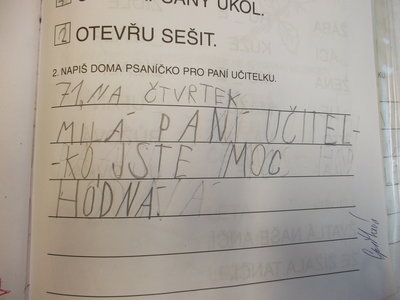 SANÝ ÚKOL.
2 OTEVŘU SEŠIT.
2. NAPIŠ DOMA PSANÍČKO PRO PANÍ UČITELKU.
71, NA ČTVRTEK
MILÁ PANÍ UČITEL-
-KO, JSTE MOC
HODNÁ.